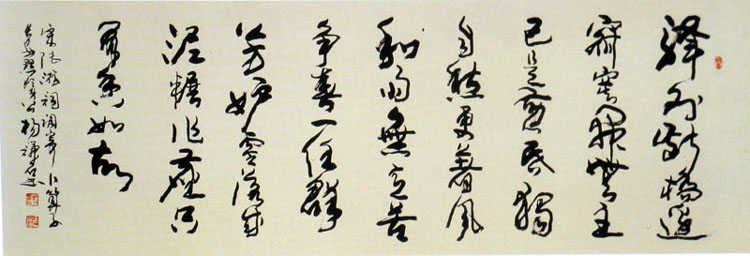 驛外斷橋邊
寂寞開無主
已是黃昏獨
自愁更著風
和雨無意苦
爭春一任群
芳妒零落成
泥碾作塵只
有香如故
宋陸游詞調寄卜算子
楊